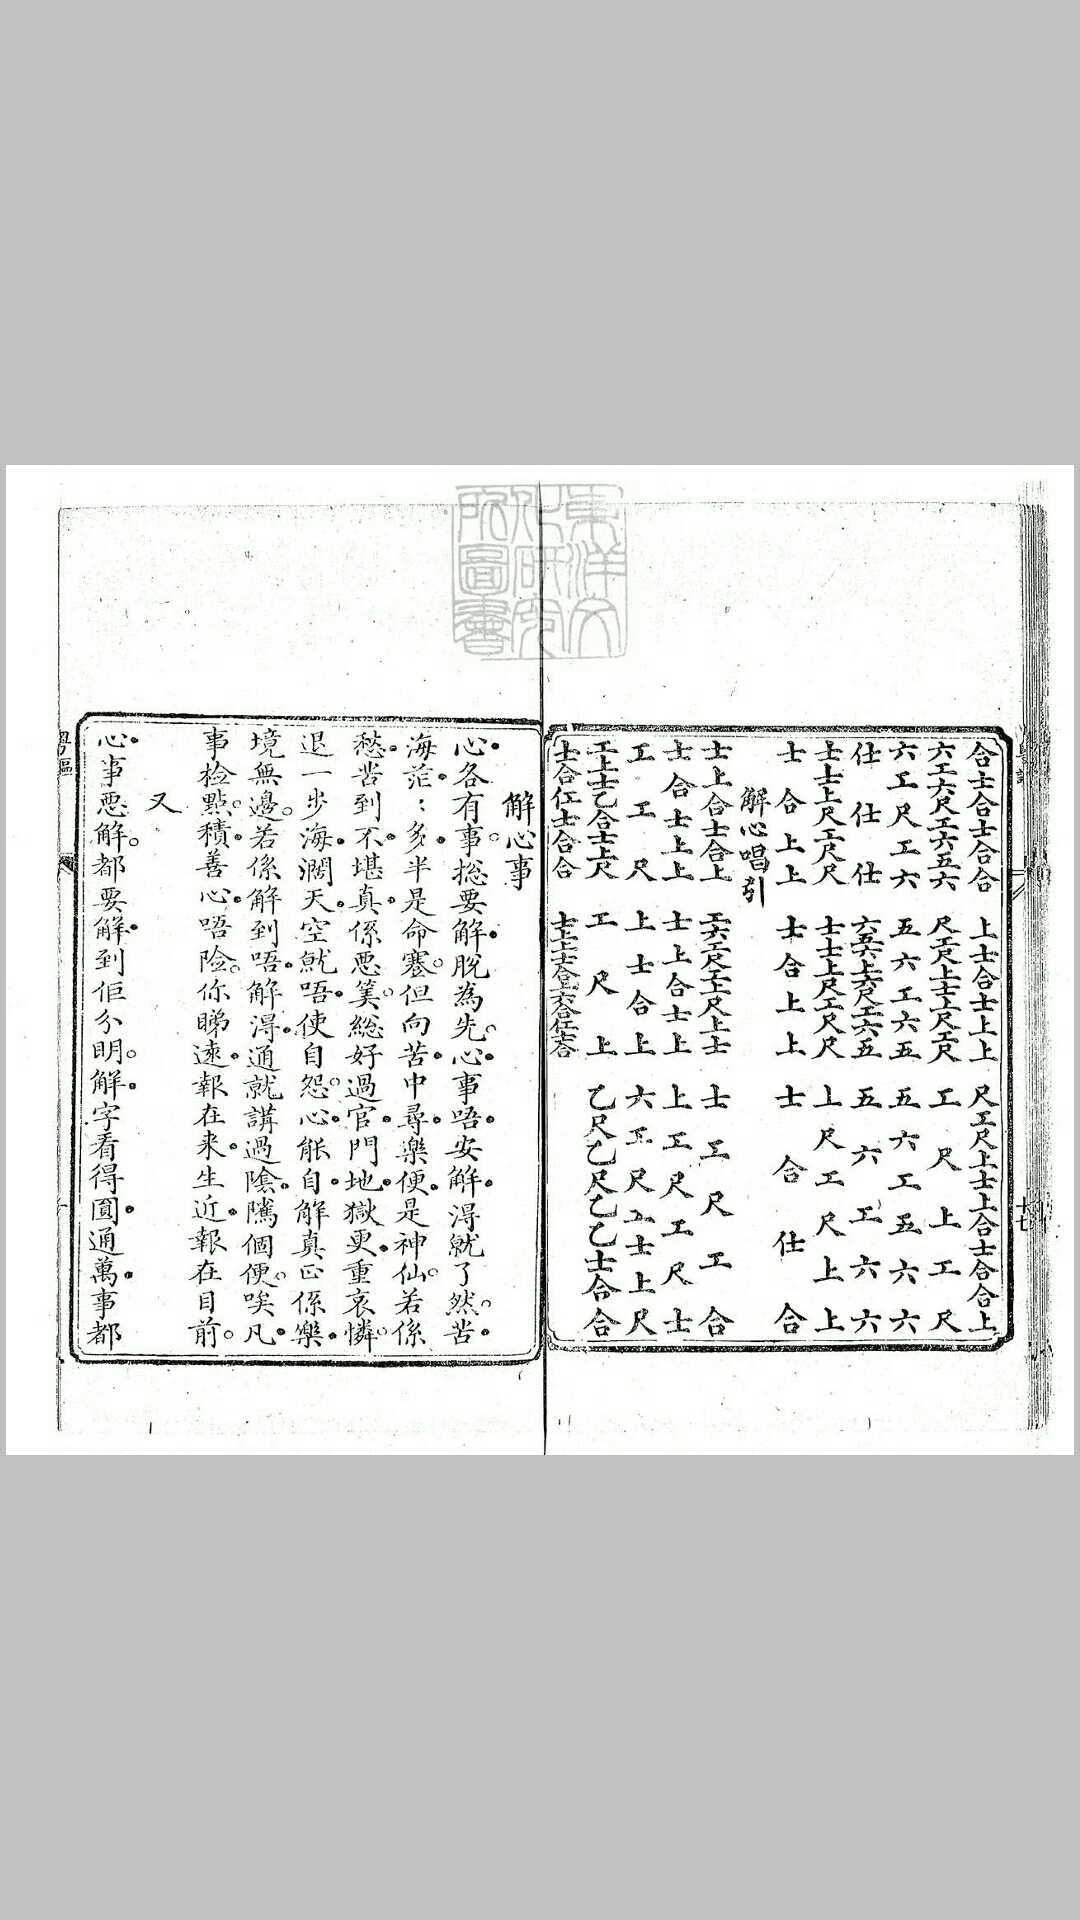 合士合士合合 上士合士上上 尺工尺上士上合士合合上
六工六尺工六五六 尺工尺上士上尺工尺 工尺上工尺
六工尺工六 五六工六五 五六工五六六
仕仕仕 六五六上六尺工六五 五六工六六
士士上尺工尺尺 士士上尺工尺尺 上尺工尺上上
士合上上 士合上上 士合仕合
解心唱引
士上合士合上 工六工尺工上尺上士 士工尺工合
士合士上上 士上合士上 上工尺工尺士
工工尺 上士合上 六工尺工士上尺
工上士乙合士上尺 工尺上 乙尺乙尺乙乙士合合
士合仜士合合
解心事
心各有事。總要解脫為先。心事唔安解得就了然。苦
海茫：多半是命蹇。但向苦中尋樂便是神仙。若係
愁苦到不堪真係惡筭。總好過官門地獄更重哀憐。
退一步海濶天空就唔使自怨。心能自解真正係樂
境無邊。若係解到唔解得通就講過陰隲個便。唉凡
事檢點。積善心唔險。你睇遠報在來生近報在目前。
又
心事惡解。都要解到佢分明。解字看得圓通萬事都
粵謳
十七
東洋文化研究所圖書